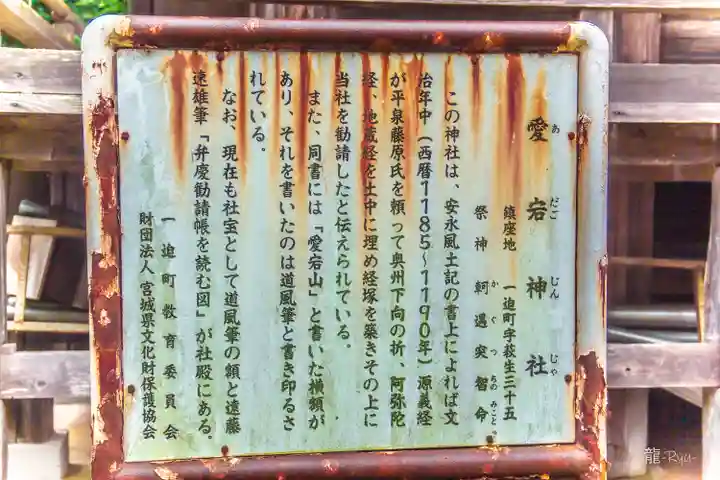 愛宕神社
あだごじんじゃ
鎮座地 一迫町字萩生三十五
祭神 軻遇突智命
かぐつちのみこと
この神社は、安永風土記の書上によれば文
治年中(西暦1185〜1190年)源義経
が平泉藤原氏を頼って奥州下向の折、阿弥陀
経、地蔵経を土中に埋め経塚を築きその上に
当社を勧請したと伝えられている。
また、同書には「愛宕山」と書いた横額が
あり、それを書いたのは道風筆と書き印るさ
れている。
なお、現在も社宝として道風筆の額と遠藤
速雄筆「弁慶勧請帳を読む図」が社殿にある。
一迫町教育委員会
財団法人 宮城県文化財保護協会
龍-Ryu-